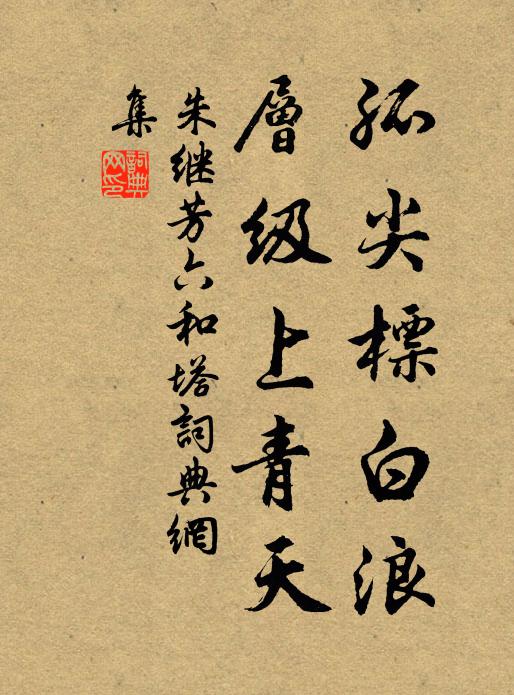 孤尖標白浪
層級上青天
朱继芳六和塔詞典網
集
詞典
网印